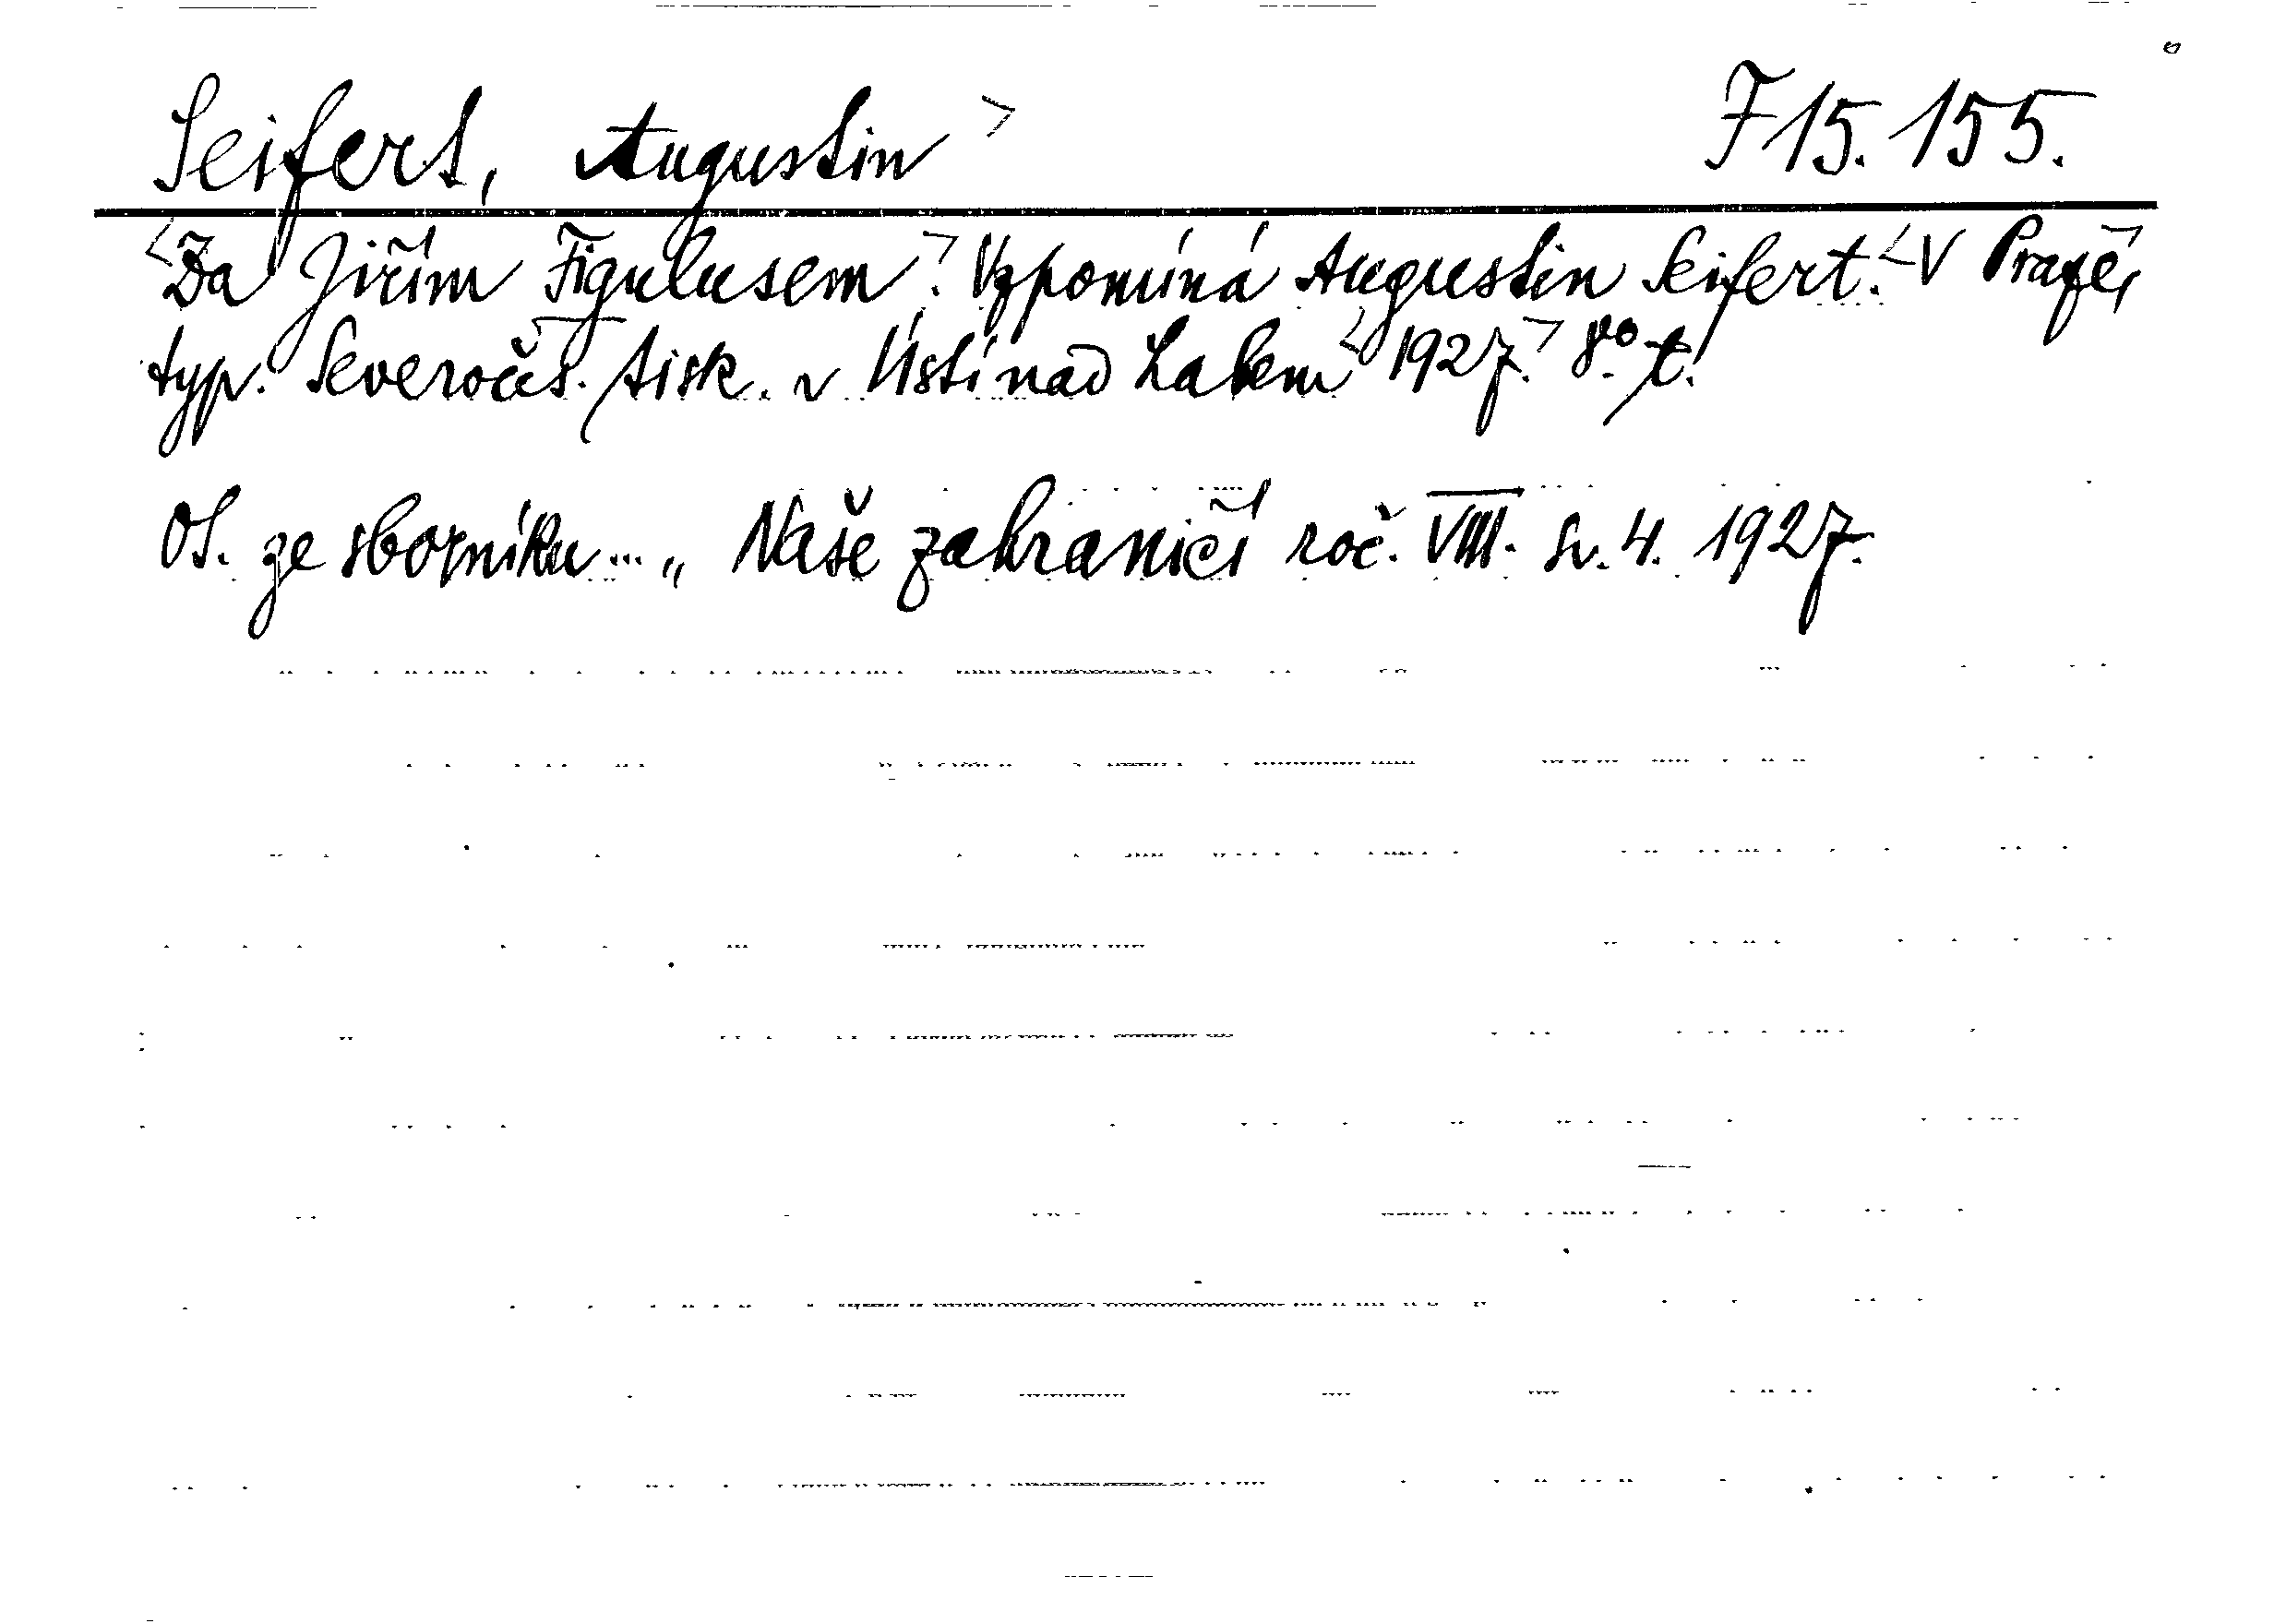 Seifert, Augustin > F 15.155.
<Za Jiřím Figulusem>. Vzpomíná Augustin Seifert. <V Praze,
typ. Severočes. tisk. v Ústí nad Labem <1927.> 8º. t.
Ot. ze sborníku... „ Naše zahraničí roč. VIII. sv. 4. 1927.